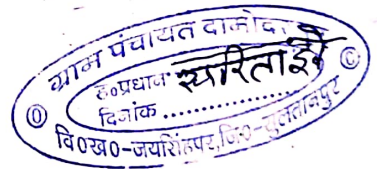 ग्राम पंचायत दामोदरा
ह०प्रधान
दिनांक ..................
वि०ख०-जयसिंहपुर,जि०-सुलतानपुर